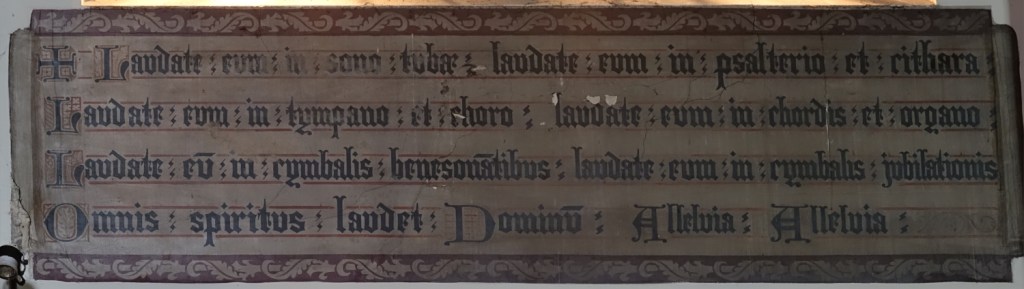 ✠ Laudate : eum : in : sono : tubæ : laudate : eum : in : psalterio : et : cithara
Laudate : eum : in : tympano : et : choro : laudate : eum : in : chordis : et : organo :
Laudate : eū : in : cymbalis : benesonātibus : laudate : eum : in : cymbalis : jubilationis
Omnis : spiritus : laudet : Dominū : Alleluia : Alleluia :